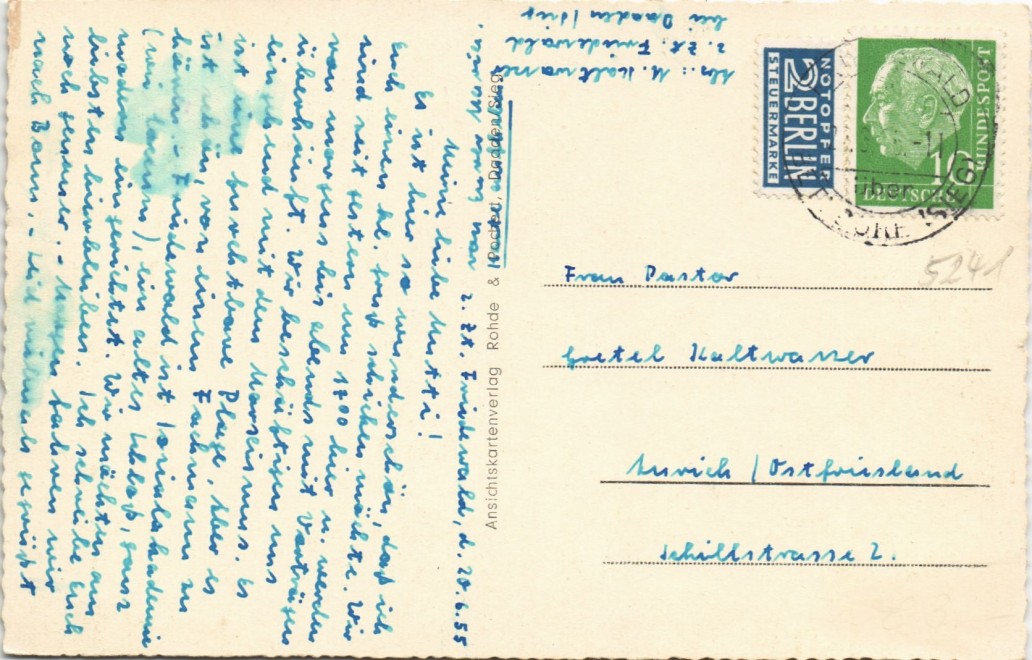 z. Zt. Friedewald, d. 20.6.55
Meine liebe Mutti!
Es ist hier so wunderschön, daß ich
Euch einen kl. Gruß schicken möchte. Wir
sind seit gestern um 1700 hier u. werden
von morgens bis abends mit Vorträgen
überhäuft. Wir beschäftigen uns
eingehend mit dem Marxismus. Es
ist eine furchtbare Plage. Aber es
ist schön, von einem Fachmann zu
hören. - Friedewald ist Sozialakademie
(wir tagen), ein altes Schloß, ganz
modern eingerichtet. Wir möchten am
liebsten hierbleiben. Ich schreibe Euch
noch genauer. - Morgen fahren wir
nach Bonn. - Seid vielmals gegrüßt
Abs.: M. Kaltwasser
z. Zt. Friedewald
bei Daaden/Sieg
Ansichtskartenverlag Rohde & Pochert, Daaden/Sieg
NOTOPFER
2 BERLIN
STEUERMARKE
DEUTSCHE
BUNDESPOST
10
über
5241
Frau Pastor
Gretel Kaltwasser
Aurich / Ostfriesland
Schillstrasse 2.